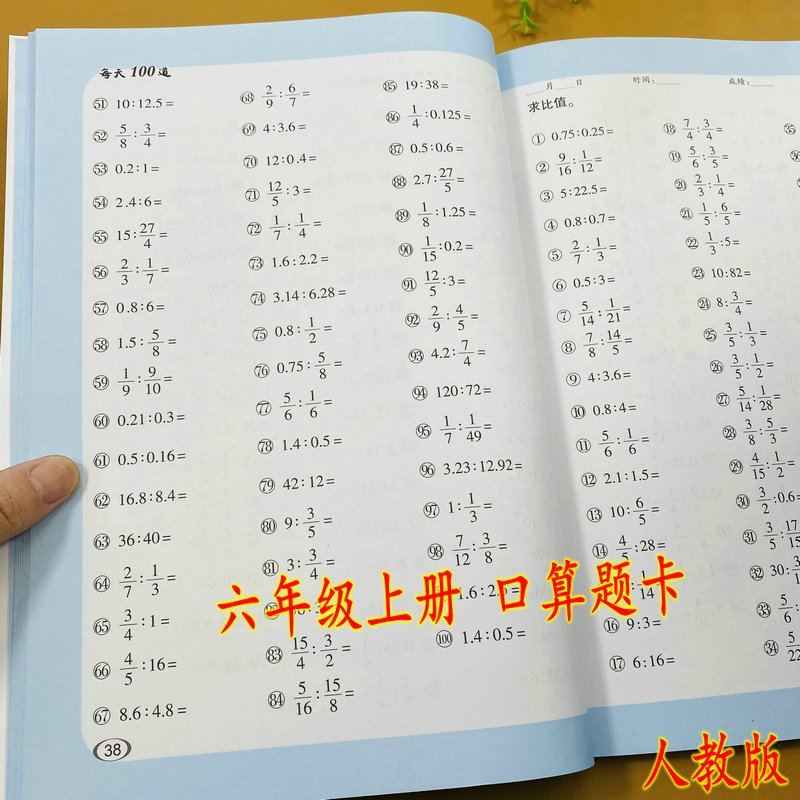 每天100道
51 10:12.5=
52 5/8:3/4=
53 0.2:1=
54 2.4:6=
55 15:27/4=
56 2/3:1/7=
57 0.8:6=
58 1.5:5/8=
59 1/9:9/10=
60 0.21:0.3=
61 0.5:0.16=
62 16.8:8.4=
63 36:40=
64 2/7:1/3=
65 3/4:1=
66 4/5:16=
67 8.6:4.8=
68 2/9:6/7=
69 4:3.6=
70 12:0.4=
71 12/5:3=
72 1/7:1/4=
73 1.6:2.2=
74 3.14:6.28=
75 0.8:1/2=
76 0.75:5/8=
77 5/6:1/6=
78 1.4:0.5=
79 42:12=
80 9:3/5=
81 3:3/4=
83 15/4:3/2=
84 5/16:15/8=
85 19:38=
86 1/4:0.125=
87 0.5:0.6=
88 2.7:27/5=
89 1/8:1.25=
90 1/15:0.2=
91 12/5:3=
92 2/9:4/5=
93 4.2:7/4=
94 120:72=
95 1/7:1/49=
96 3.23:12.92=
97 1:1/3=
98 7/12:3/8=
100 1.4:0.5=
38
月 日 时间: 成绩:
求比值。
1 0.75:0.25=
2 9/16:1/12=
3 5:22.5=
4 0.8:0.7=
5 2/7:1/3=
6 0.5:3=
7 5/14:1/21=
8 7/8:14/5=
9 4:3.6=
10 0.8:4=
11 5/6:1/6=
12 2.1:1.5=
13 10:6/5=
14 4/5:28=
16 9:3=
17 6:16=
18 7/4:3/4=
19 5/6:3/5=
20 2/3:1/4=
21 1/5:6/5=
22 1/3:5=
23 10:82=
24 8:3/4=
25 3/5:1/3=
26 3/5:1/2=
27 5/14:1/28=
28 3/8:5/3=
29 4/15:1/2=
30 3/2:0.6=
31 3/5:17/15
32 30:
33 5/6:
34
35
六年级上册 口算题卡
人教版